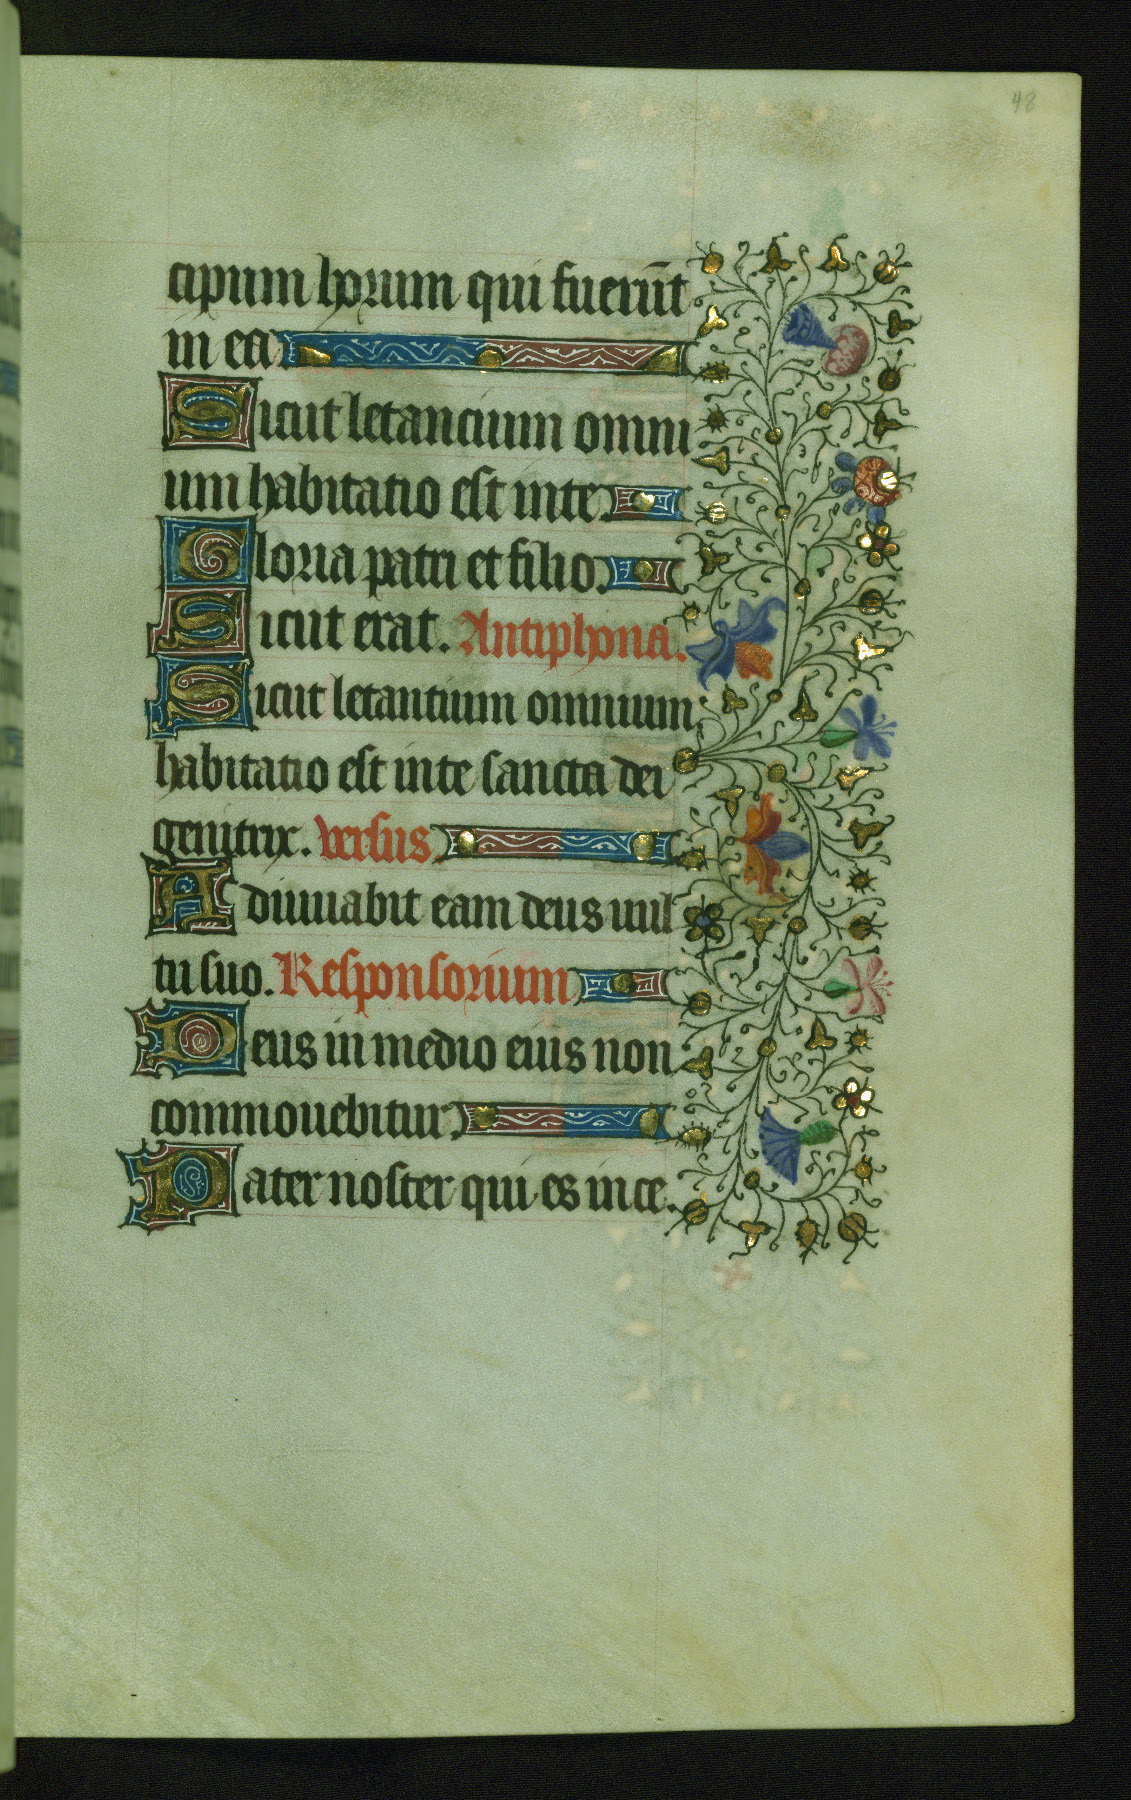 48
cipum horum qui fuerūt
in ea
Sicut letancium omni
um habitatio est in te.
Gloria patri et filio.
Sicut erat. Antiphona.
Sicut letantium omnium
habitatio est in te sancta dei
genitrix. versus
Adiuuabit eam deus uul
tu suo. Responsorium
Deus in medio eius non
commouebitur.
Pater noster qui es in ce.